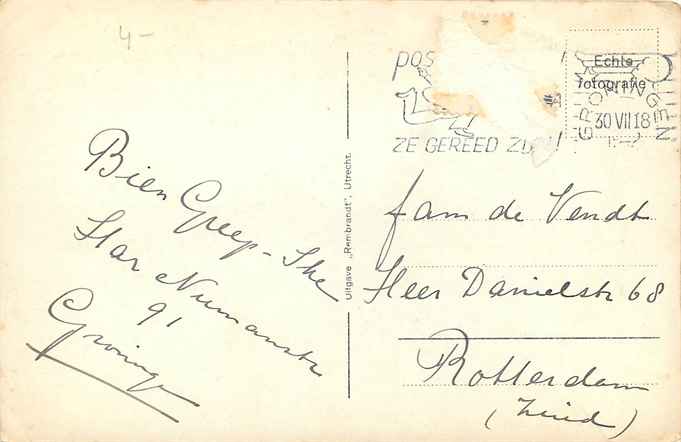 4-
pos
ZE GEREED ZIJN!
Echte
fotografie
GRONINGEN
30 VII 18
Bien Greep-Ske
Star Numanstr
91
Groningen
Uitgave „Rembrandt", Utrecht.
fam de Vendt
Heer Danielstr 68
Rotterdam
(Zuid)